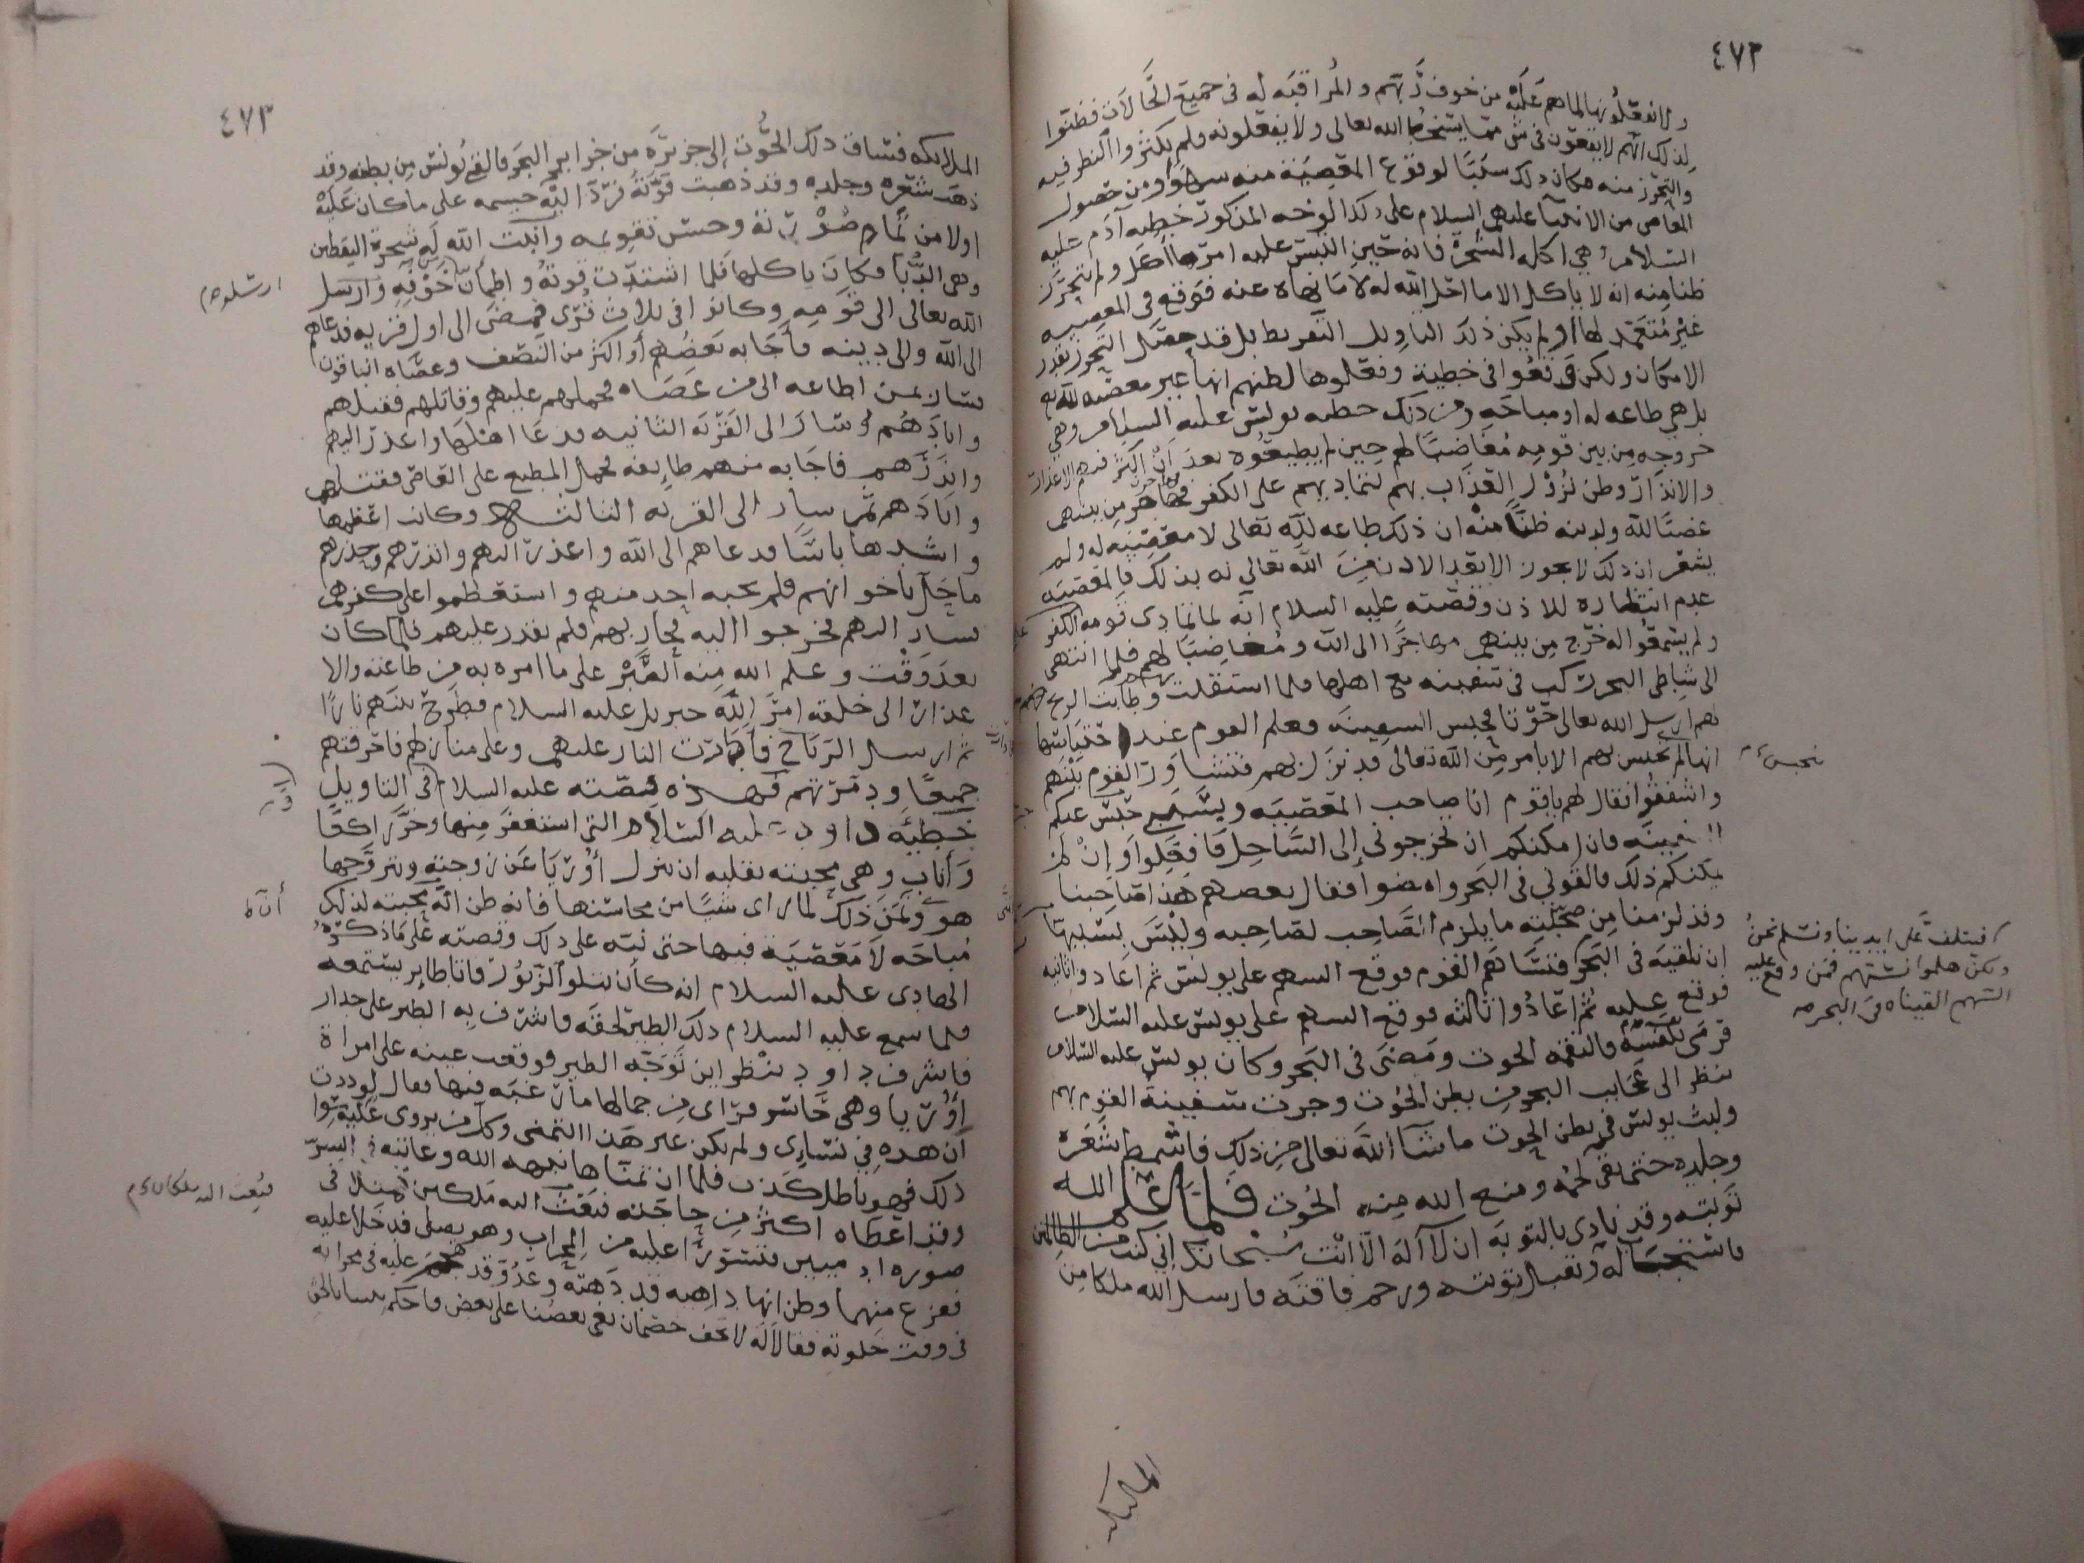 ٤٧٢
ولا نفعلونها لما هم عليه من خوف ربهم والمراقبه له في جميع الحالات فظنوا
لذلك انهم لا يقعون في شي مما الله تعالى ولا يفعلونه ولم يكثروا النظر فيه
والتحرز منه فكان ذلك سببا لوقوع المعصية منه ومن حصول
المعاصي من الانبيا عليهم السلام على ذلك الوجه المذكور خطيه آدم عليه
السلام وهي اكله الشجرة فانه حين التبس عليه امرها اكل ولم يتحرز
ظنا منه انه لا ياكل الا ما احل الله له لا ما نهاه عنه فوقع في المعصيه
غير متعمد لها ولم يكن ذلك التاويل التفريط بل قد حصل التحرز بقدر
الامكان ولكن وقعوا في خطية وفعلوها لظنهم انها غير معصيه لله
بل هي طاعه له او مباحه ومن ذلك خطيه يونس عليه السلام وهي
خروجه من بين قومه مغاضبا لهم حين لم يطيعوه بعد ان اكثر فيهم الاعذار
والانذار وظن نزول العذاب بهم لتماديهم على الكفر فهاجر من بينهم
غضبا لله ولدينه ظنا منه ان ذلك طاعه لله تعالى لا معصيه له ولم
يشعر ان ذلك لا يجوز الا بعد الاذن من الله تعالى له بذلك فالمعصيه
عدم انتظاره للاذن وقصته عليه السلام انه لما تمادى قومه الكفر
ولم يسمعوا له خرج من بينهم مهاجرا الى الله ومغاضبا لهم فلما انتهى
الى شاطى البحر ركب في سفينه مع اهلها فلما استقلت بهم وطابت الريح
لهم ارسل الله تعالى حوتا فحبس السفينه فعلم القوم عند احتباسها
انها لم تحبس بهم الا بامر من الله تعالى قد نزل بهم فتشاور القوم بينهم
واشفقوا فقال لهم ياقوم انا صاحب المعصيه وبسببي حبس عنكم
السفينه فان امكنكم ان تخرجوني الى الساحل فافعلوا وان لم
يمكنكم ذلك فالقوني في البحر وامضوا فقال بعضهم هذا صاحبنا
وقد لزمنا من صحبته ما يلزم الصاحب لصاحبه وليس يشبهنا
ان نلقيه في البحر فتساهم القوم فوقع السهم على يونس ثم اعادوا ثانيه
فوقع عليه ثم اعادوا ثالثه فوقع السهم على يونس عليه السلام
فرمى بنفسه فالتقمه الحوت ومضى في البحر وكان يونس عليه السلام
ينظر الى عجايب البحر من بطن الحوت وجرت سفينة القوم بهم
ولبث يونس في بطن الحوت ما شا الله تعالى من ذلك فانمط شعره
وجلده حتى بقي لحمه ومنع الله منه الحوت فلما علم الله
توبته وقد نادى بالتوبه ان لا اله الا انت سبحانك اني كنت من الظالمين
فاستجاب له وتقبل توبته ورحم فاقته فارسل الله ملكا من
الملائكه
تحبس
فيتلف على ايدينا ونسلم نحن
ولكن هلموا نستهم فمن وقع عليه
السهم القيناه في البحر صه
٤٧٣
الملائكه فساق ذلك الحوت الى جزيرة من جزاير البحر فالقى يونس من بطنه وقد
ذهب شعره وجلده وقد ذهبت قوته فرد الله جسمه على ما كان عليه
اولا من تمام صورته وحسن تقويمه وانبت الله له شجرة اليقطين
وهي الدبا فكان ياكلها فلما اشتدت قوته واطمان خوفه وارسل
الله تعالى الى قومه وكانوا في ثلاث قرى فمضى الى اول قريه فدعاهم
الى الله والى دينه فاجابه بعضهم او اكثر من النصف وعصاه الباقون
فسار بمن اطاعه الى من عصاه فحملهم عليهم وقاتلهم فقتلهم
وابادهم وسار الى القريه الثانيه فدعا اهلها واعذر اليهم
وانذرهم فاجابه منهم طايفه فحمل المطيع على العاصي فقتلهم
وابادهم ثم سار الى القريه الثالثه وكانت اعظمها
واشدها باسا فدعاهم الى الله واعذر اليهم وانذرهم وحذرهم
ما حل باخوانهم فلم يجبه احد منهم واستعظموا على كفرهم
فسار اليهم فخرجوا اليه فحاربهم فلم يقدر عليهم فلما كان
بعد وقت وعلم الله منه الصبر على ما امره به من طاعته والا
عذار الى خلقه امر الله جبريل عليه السلام فطرح بينهم نارا
ثم ارسل الرياح فاثارت النار عليهم وعلى منازلهم فاحرقتهم
جميعا ودمرتهم فهذه قصته عليه السلام في التاويل
خطيئه داود عليه السلام التي استغفر منها وخر راكعا
واناب وهي محبته بقلبه ان ينزل اوريا عن زوجته ويتزوجها
هو وتمنى ذلك لما راى شيا من محاسنها فانه ظن انه محبته لذلك
مباحه لا معصيه فيها حتى نبه على ذلك وقصته على ما ذكره
الهادى عليه السلام انه كان يتلو الزبور فاتا طاير يستمعه
فلما سمع عليه السلام ذلك الطير لحقه فاشرف به الطير على جدار
فاشرف داود ينظر اين توجه الطير فوقعت عينه على امراة
اوريا وهي حاسر فراى من جمالها ما رغبه فيها فقال لوددت
ان هذه في نسايى ولم يكن غير هذا التمني وكل من يروى عليه سوا
ذلك فهو باطل كذب فلما ان تمناها نبهه الله وعاتبه في السر
وقد اعطاه اكثر من حاجته فبعث اليه ملكين فمثلا في
صوره ادميين فتسورا عليه من المحراب وهو يصلي فدخلا عليه
ففزع منهما وظن انها داهيه قد دهته وعدو قد هجم عليه في محرابه
في وقت خلوته فقالا له لا تخف خصمان بغى بعضنا على بعض فاحكم بيننا بالحق
ارسله